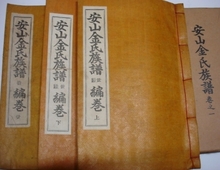 安山金氏族譜 卷之一
安山金氏族譜 編卷 上
安山金氏族譜 編卷 下
安山金氏族譜 編卷